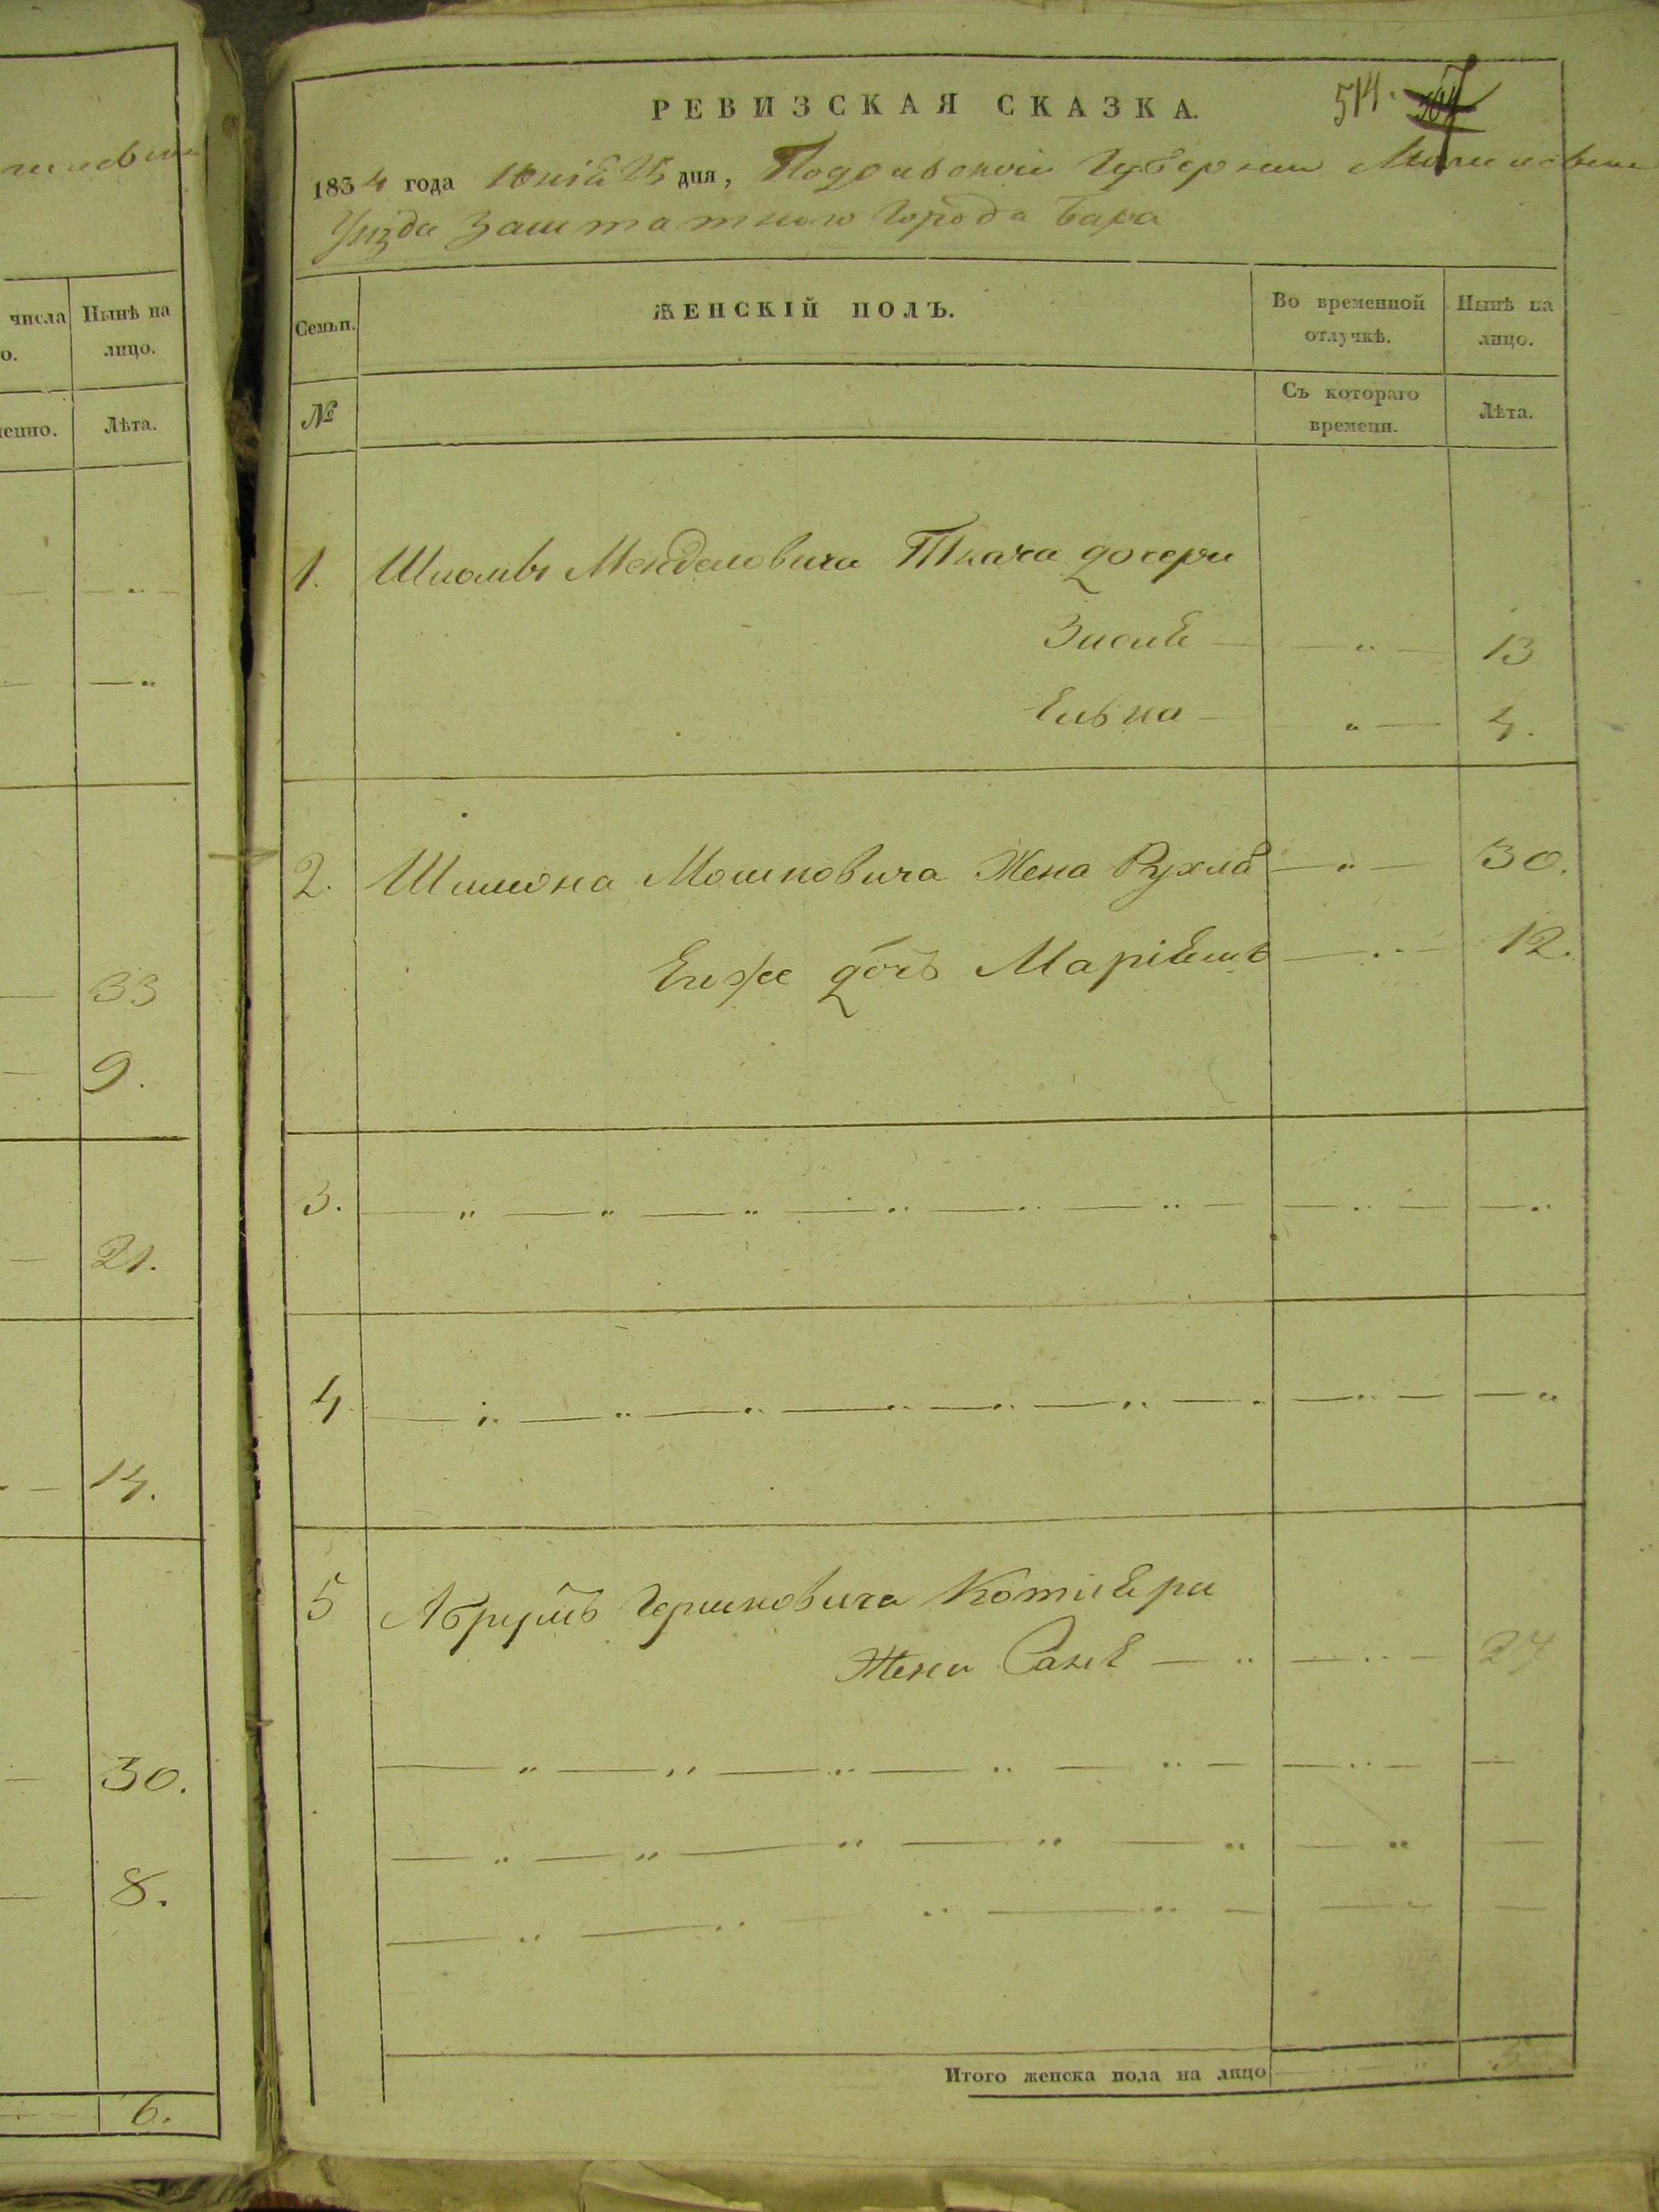 числа
о.
Нынѣ на
лицо.
Лѣта.
33
9.
21.
14.
30.
8.
6.
РЕВИЗСКАЯ СКАЗКА.
514.
1834 года Юнія 25 дня, Подольской Губерніи
Уѣзда Заштатного Города Бара
Семьи.
ЖЕНСКІЙ ПОЛЪ.
Во временной
отлучкѣ.
Нынѣ на
лицо.
№
Съ котораго
времени.
Лѣта.
1. Шломы Менделовича Ткача дочери
Зисля 13
Елька 4.
2. Шимона Мошковича Жена Рухля 30.
Его же дочь 12.
3.
4.
5 Гершковича
Жена 24
Итого женска пола на лицо 5